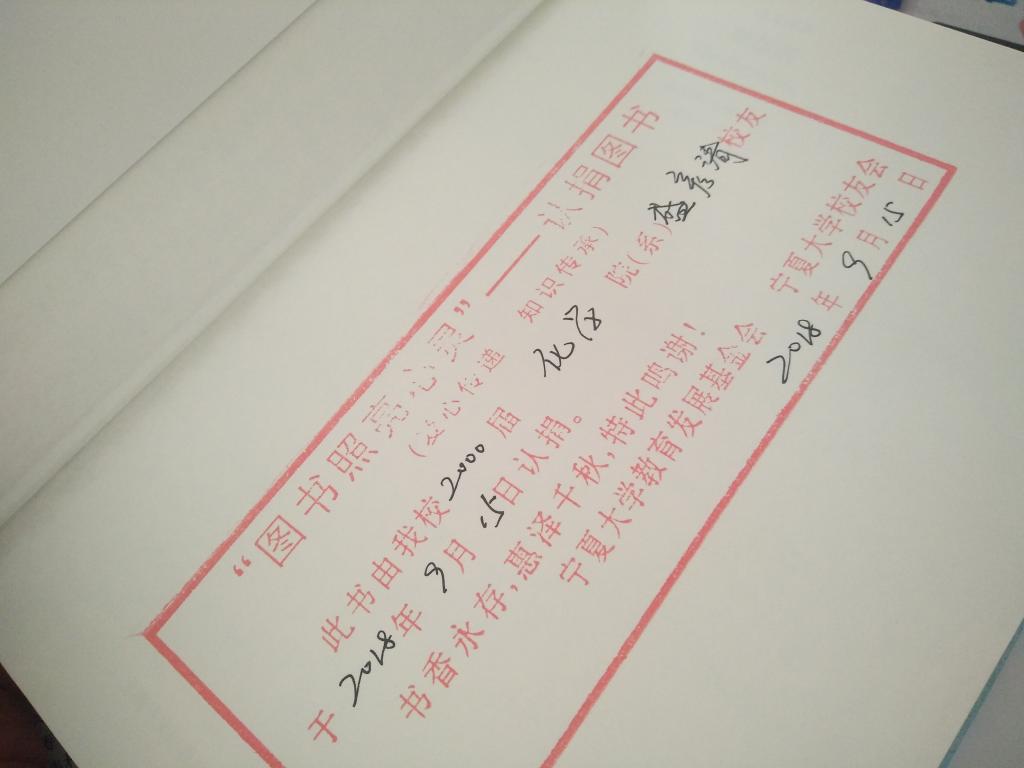 “图书照亮心灵”——认捐图书
（爱心传递 知识传承）
此书由我校2000届 化学 院（系）彦清校友
于2018年9月15日认捐。
书香永存，惠泽千秋，特此鸣谢！
宁夏大学教育发展基金会
宁夏大学校友会
2018年9月15日